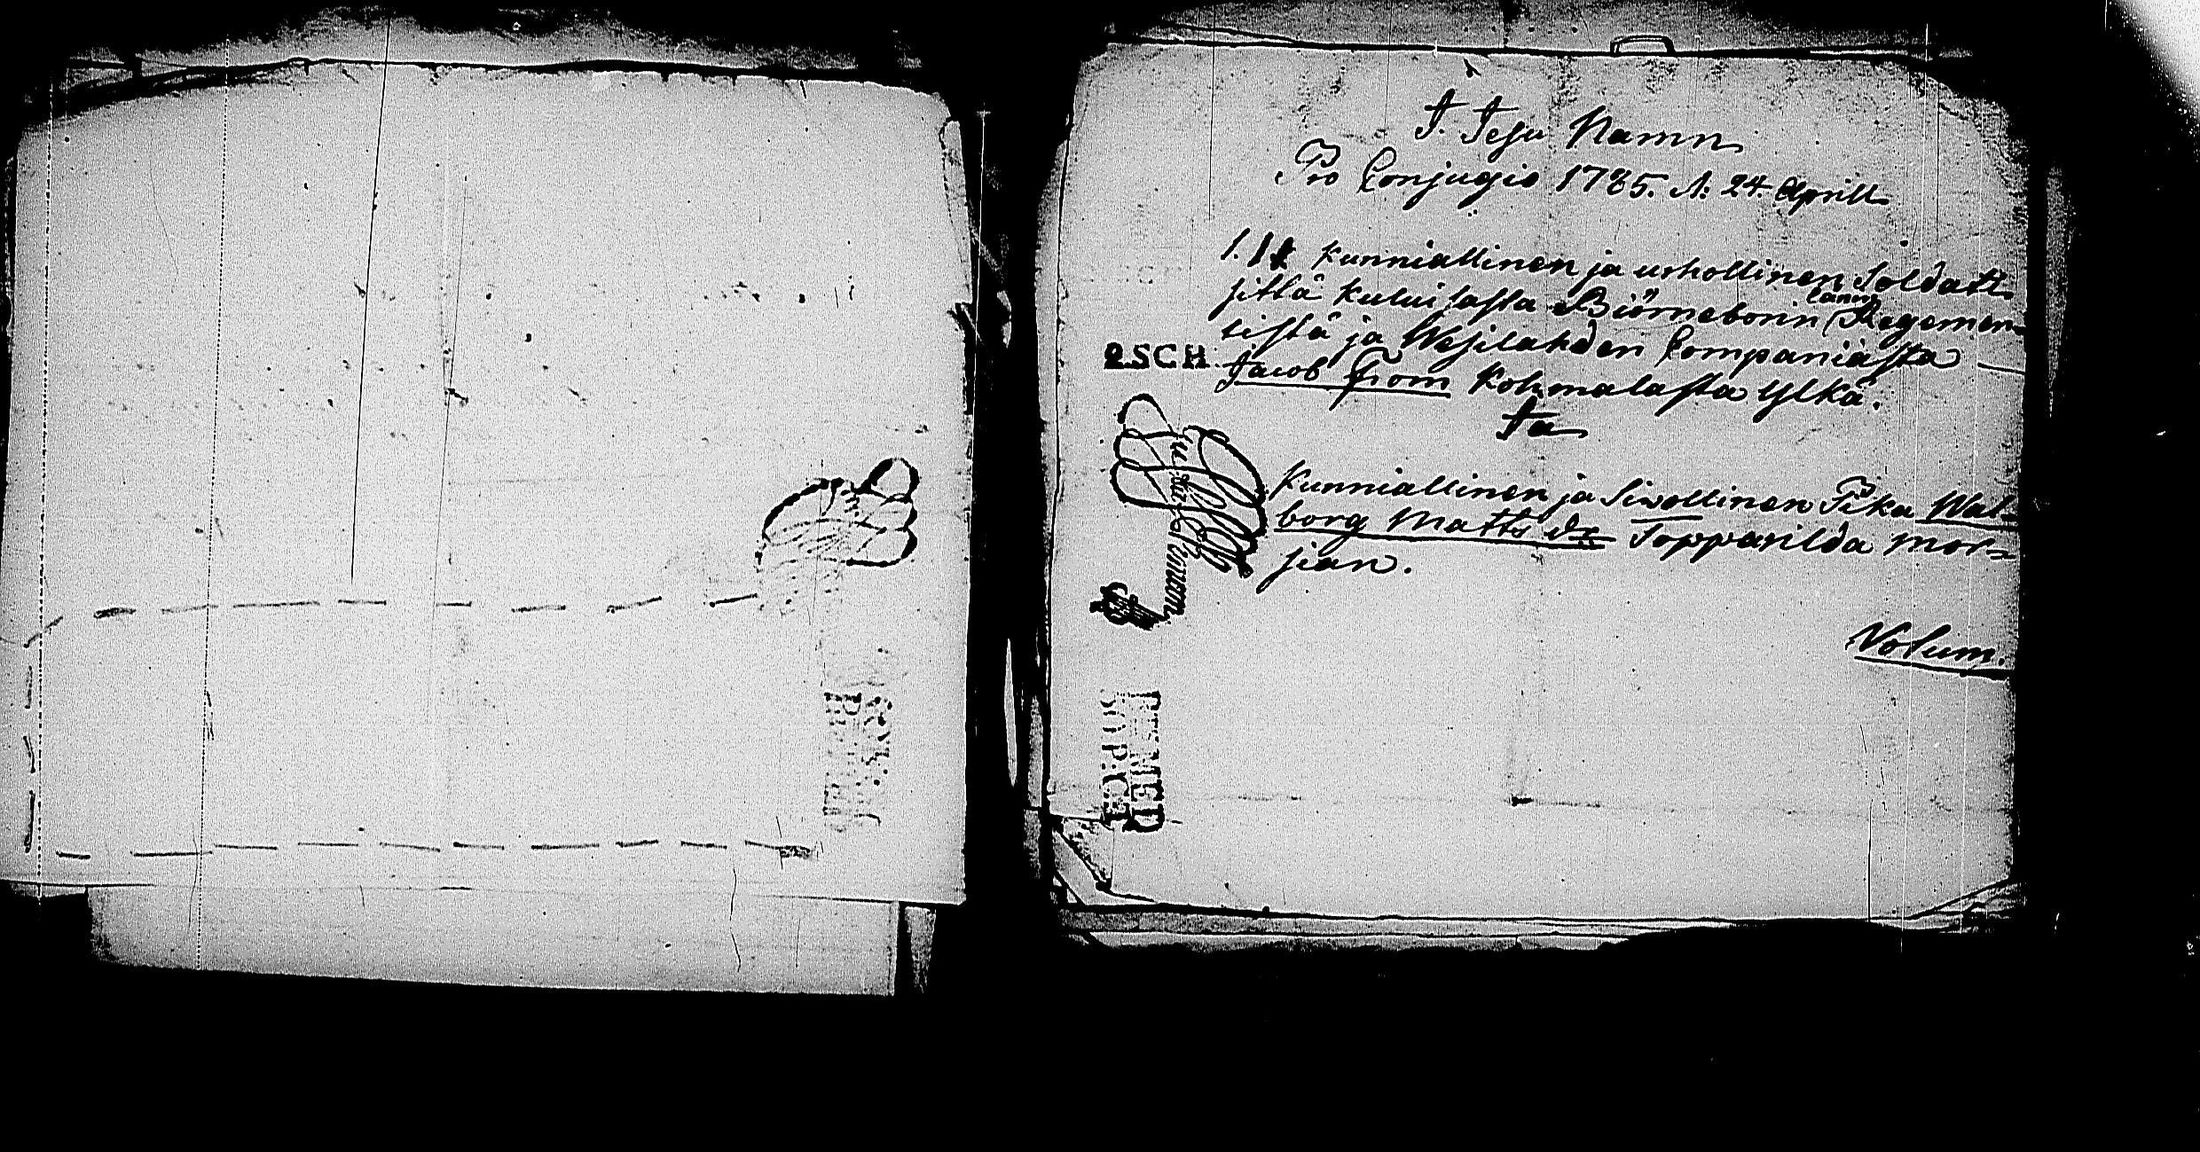 J. Jesu Namn
Pro Conjugio 1785. d. 24. Aprill
1. kunniallinen ja urhollinen Soldatt
sillä kuluisasta Biörneborin länin Regemen-
tistä ja Wesilahden Compania̋sta
2 SCH
Jacob From Kohmalasta Ylkä.
Ja
Kunniallinen ja Siwollinen Pika Wal-
borg Matts dr Topparilda mor-
sian.
Votum.